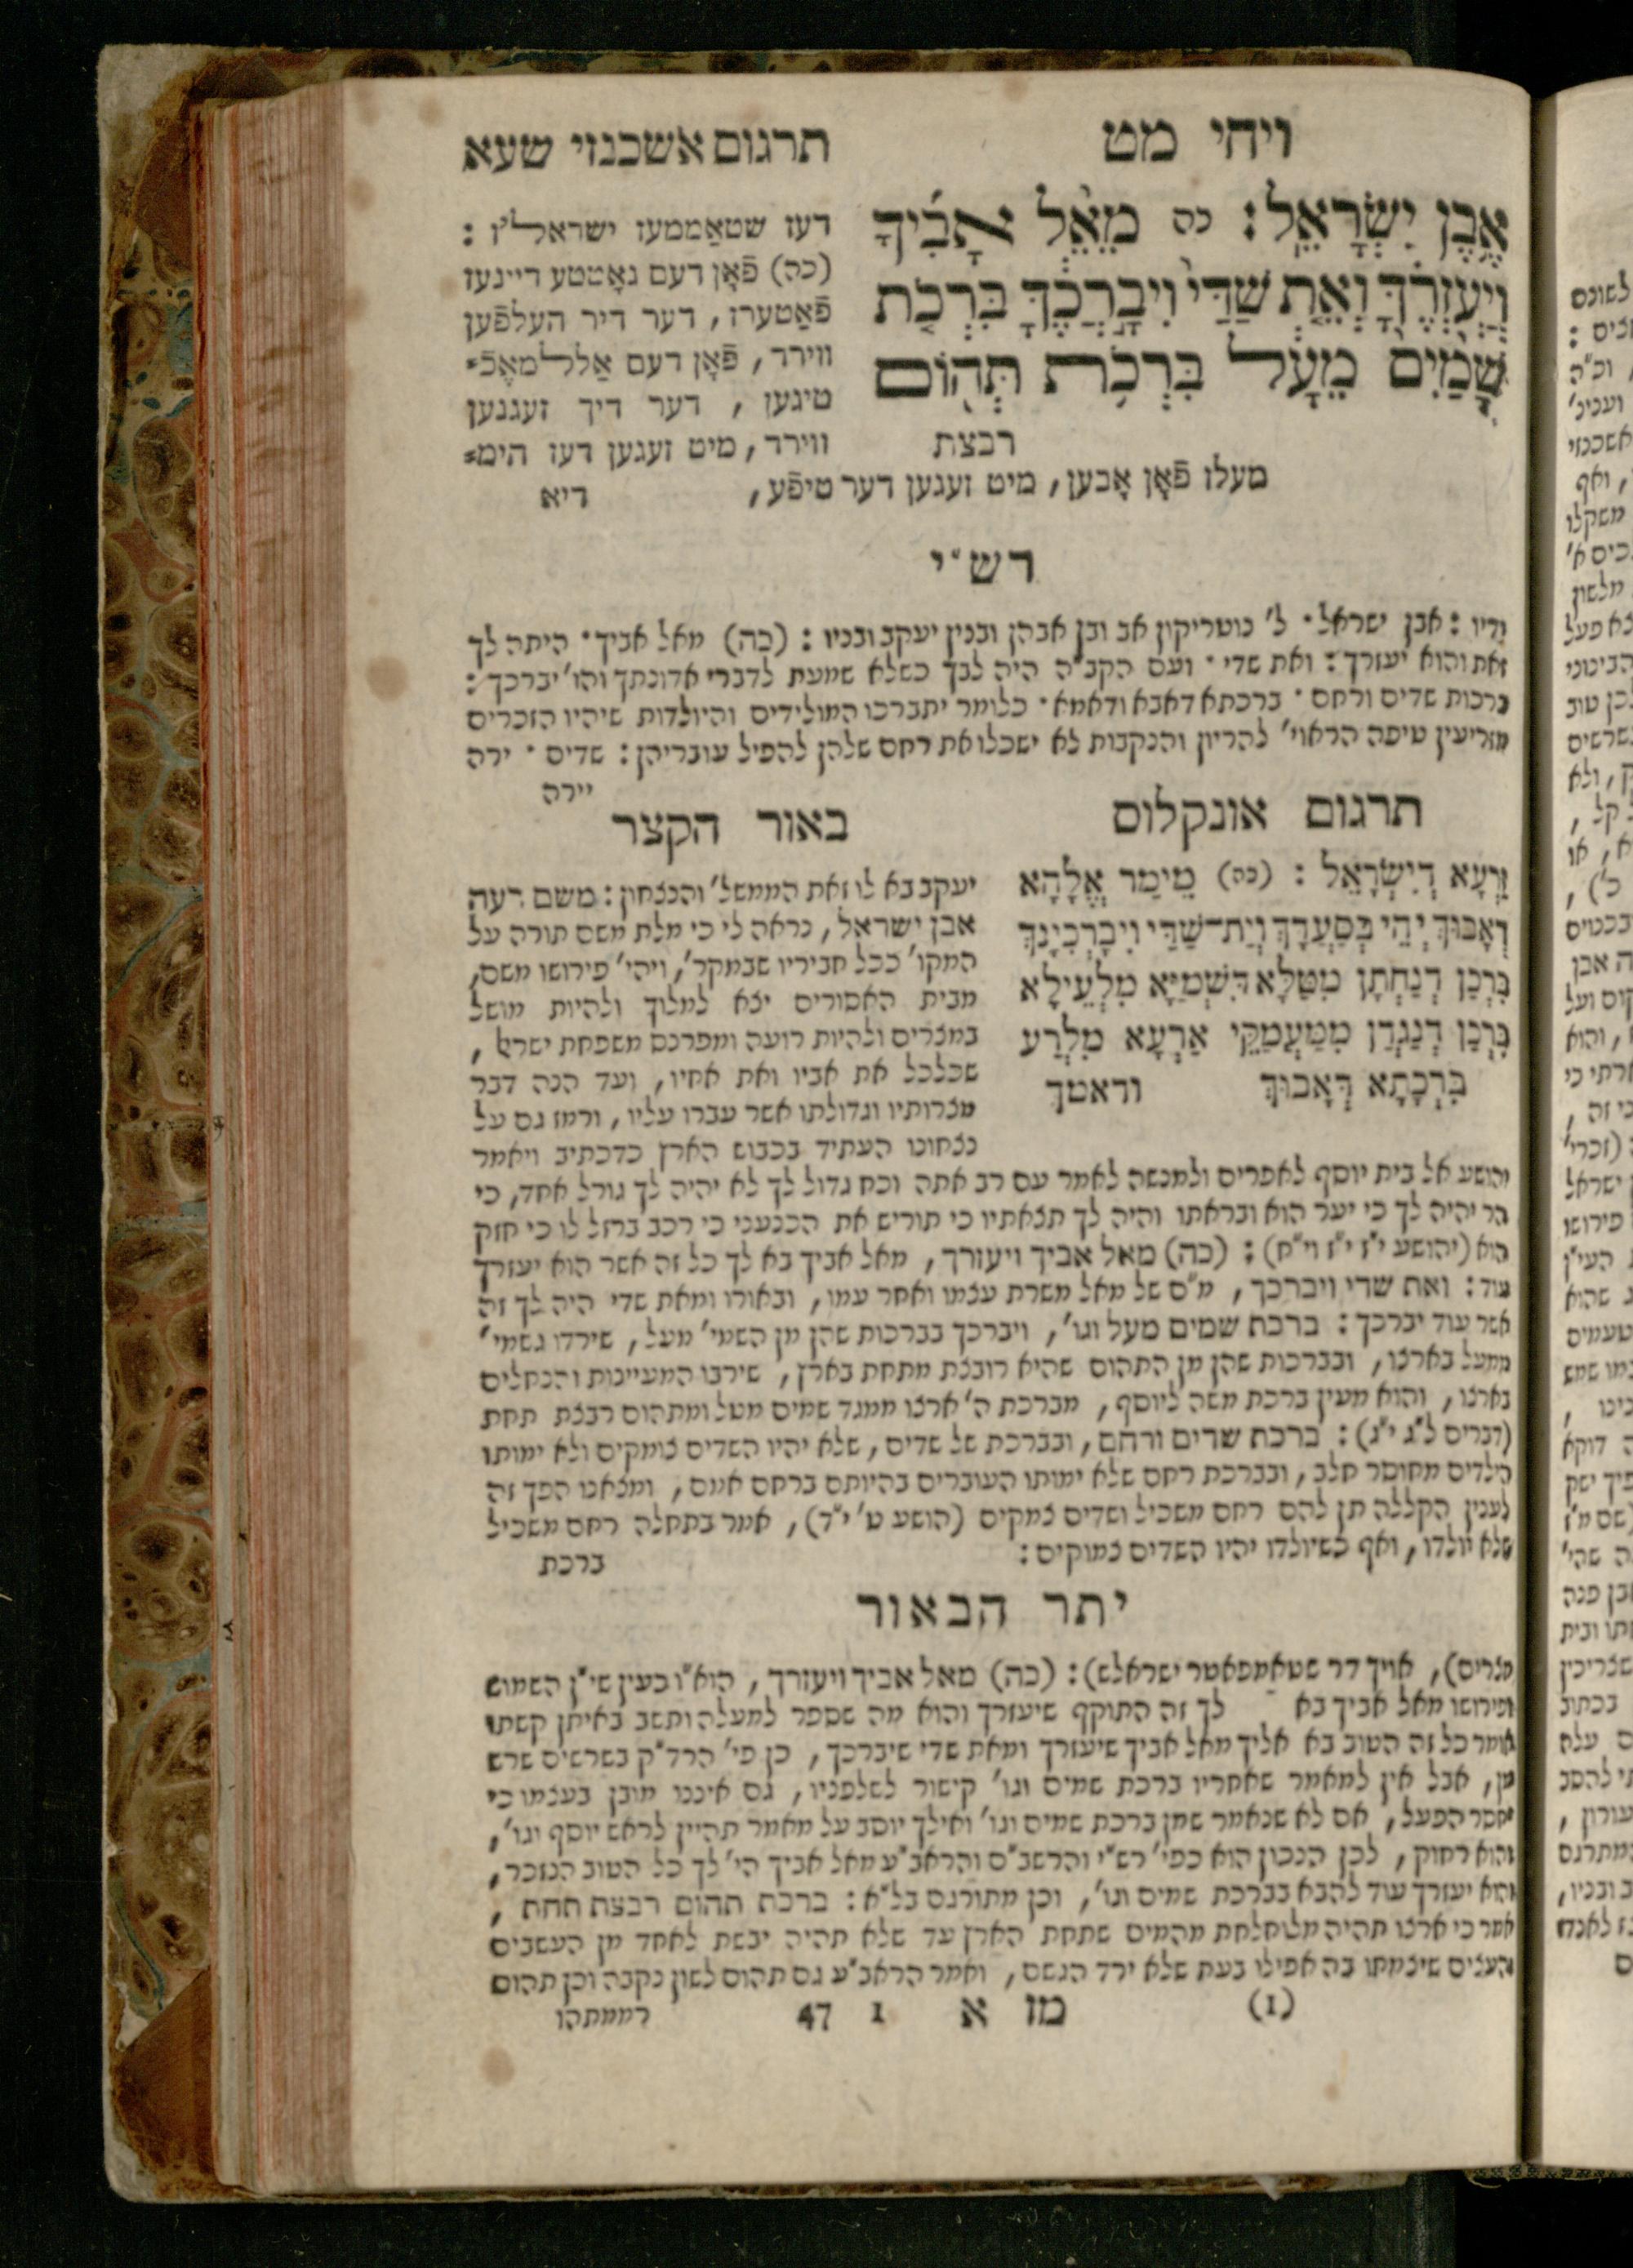 ויחי מט
תרגום אשכנזי שעא
אֶ֥בֶן יִשְׂרָאֵֽל׃ כה מֵאֵ֨ל אָבִ֜יךָ
וְיַעְזְרֶ֗ךָּ וְאֵ֤ת שַׁדַּי֙ וִיבָ֣רְכֶ֔ךָּ בִּרְכֹ֤ת
שָׁמַ֙יִם֙ מֵעָ֔ל בִּרְכֹ֥ת תְּה֖וֹם
רבצת
דעז שטאַממעז ישראל'ז :
(כה) פֿאָן דעם גאָטטע דיינעז
פֿאַטערז, דער דיר העלפֿען
ווירד, פֿאָן דעם אַללמאֶכֿ-
טיגען , דער דיך זעגנען
ווירד, מיט זעגען דעז הימ-
מעלז פֿאָן אָבען, מיט זעגען דער טיפֿע,
דיא
רש"י
ודיו : אבן ישראל· ל' נוטריקון אב ובן אבהן ובנין יעקב ובניו : (כה) מאל אביך· היתה לך
זאת והוא יעזרך : ואת שדי · ועם הקב"ה היה לבך כשלא שמעת לדברי אדונתך והו' יברכך :
ברכות שדים ורחם · ברכתא דאבא ודאמא· כלומר יתברכו המולידים והיולדות שיהיו הזכרים
מזריעין טיפה הראוי' להריון והנקבות לא ישכלו את רחם שלהן להפיל עובריהן : שדים · ירה
יירה
תרגום אונקלוס
זַרְעָא דְיִשְׂרָאֵל : (כה) מֵימַר אֱלָהָא
דְאָבוּךְ יְהֵי בְּסַעְדָךְ וְיַת־שַׁדַּי וִיבָרְכִינָךְ
בִּרְכָן דְנַחְתָן מִטַּלָּא דִּשְׁמַיָּא מִלְעֵילָא
בִּרְכָן דְנַגְדָן מִמַּעֲמַקֵּי אַרְעָא מִלְרַע
בִּרְכָתָא דְּאָבוּךְ
ודאמך
באור הקצר
יעקב בא לו זאת הממשל' והנצחון : משם רעה
אבן ישראל, נראה לי כי מלת משם תורה על
המקו' ככל חביריו שבמקר', ויהי' פירושו משם,
מבית האסורים יצא למלוך ולהיות מושל
במצרים ולהיות רועה ומפרנס משפחת ישראל ,
שכלכל את אביו ואת אחיו, ועד הנה דבר
מצרותיו וגדולתו אשר עברו עליו, ורמז גם על
נצחונו העתיד בכבוש הארץ כדכתיב ויאמר
יהושע אל בית יוסף לאפרים ולמנשה לאמר עם רב אתה וכח גדול לך לא יהיה לך גורל אחד, כי
הר יהיה לך כי יער הוא ובראתו והיה לך תצאתיו כי תוריש את הכנעני כי רכב ברזל לו כי חזק
הוא (יהושע י"ז י"ז וי"ח) : (כה) מאל אביך ויעזרך , מאל אביך בא לך כל זה אשר הוא יעזרך
עוד : ואת שדי ויברכך , מ"ם של מאל משרת עצמו ואחר עמו, ובאורו ומאת שדי היה לך זה
אשר עוד יברכך : ברכת שמים מעל וגו', ויברכך בברכות שהן מן השמי' מעל, שירדו גשמי'
ממעל בארצו, ובברכות שהן מן התהום שהיא רובצת מתחת בארץ, שירבו המעיינות והנחלים
בארצו, והוא מעין ברכת משה ליוסף, מברכת ה' ארצו ממגד שמים מטל ומתהום רבצת תחת
(דברים ל"ג י"ג) : ברכת שדים ורחם, ובברכת של שדים, שלא יהיו השדים צומקים ולא ימותו
הילדים מחוסר חלב, ובברכת רחם שלא ימותו העוברים בהיותם ברחם אמם, ומצאנו הפך זה
לענין הקללה תן להם רחם משכיל ושדים צמקים (הושע ט' י"ד), אמר בתחלה רחם משכיל
שלא יולדו, ואף כשיולדו יהיו השדים צמוקים :
ברכת
יתר הבאור
מצרים), אויך דר שטאמפאטר ישראלש) : (כה) מאל אביך ויעזרך , הוא"ו כעין שי"ן השמוש
ופירושו מאל אביך בא לך זה התוקף שיעזרך והוא מה שספר למעלה ותשב באיתן קשתו
אומר כל זה הטוב בא אליך מאל אביך שיעזרך ומאת שדי שיברכך , כן פי' הרד"ק בשרשים שרש
מן, אבל אין למאמר שאחריו ברכת שמים וגו' קישור לשלפניו, גם איננו מובן בעצמו כי
יחסר הפעל, אם לא שנאמר שמן ברכת שמים וגו' ואילך יוסב על מאמר תהיין לראש יוסף וגו',
והוא רחוק, לכן הנכון הוא כפי' רש"י והרשב"ם והראב"ע מאל אביך הי' לך כל הטוב הנזכר,
והוא יעזרך עוד להבא בברכת שמים וגו', וכן מתורגם בל"א : ברכת תהום רבצת תחת ,
אמר כי ארצו תהיה מלוחלחת מהמים שתחת הארץ עד שלא תהיה יבשת לאחד מן העשבים
והעצים שיצמחו בה אפילו בעת שלא ירד הגשם, ואמר הראב"ע גם תהום לשון נקבה וכן תהום
(1) מז א 1 47
רממתהו